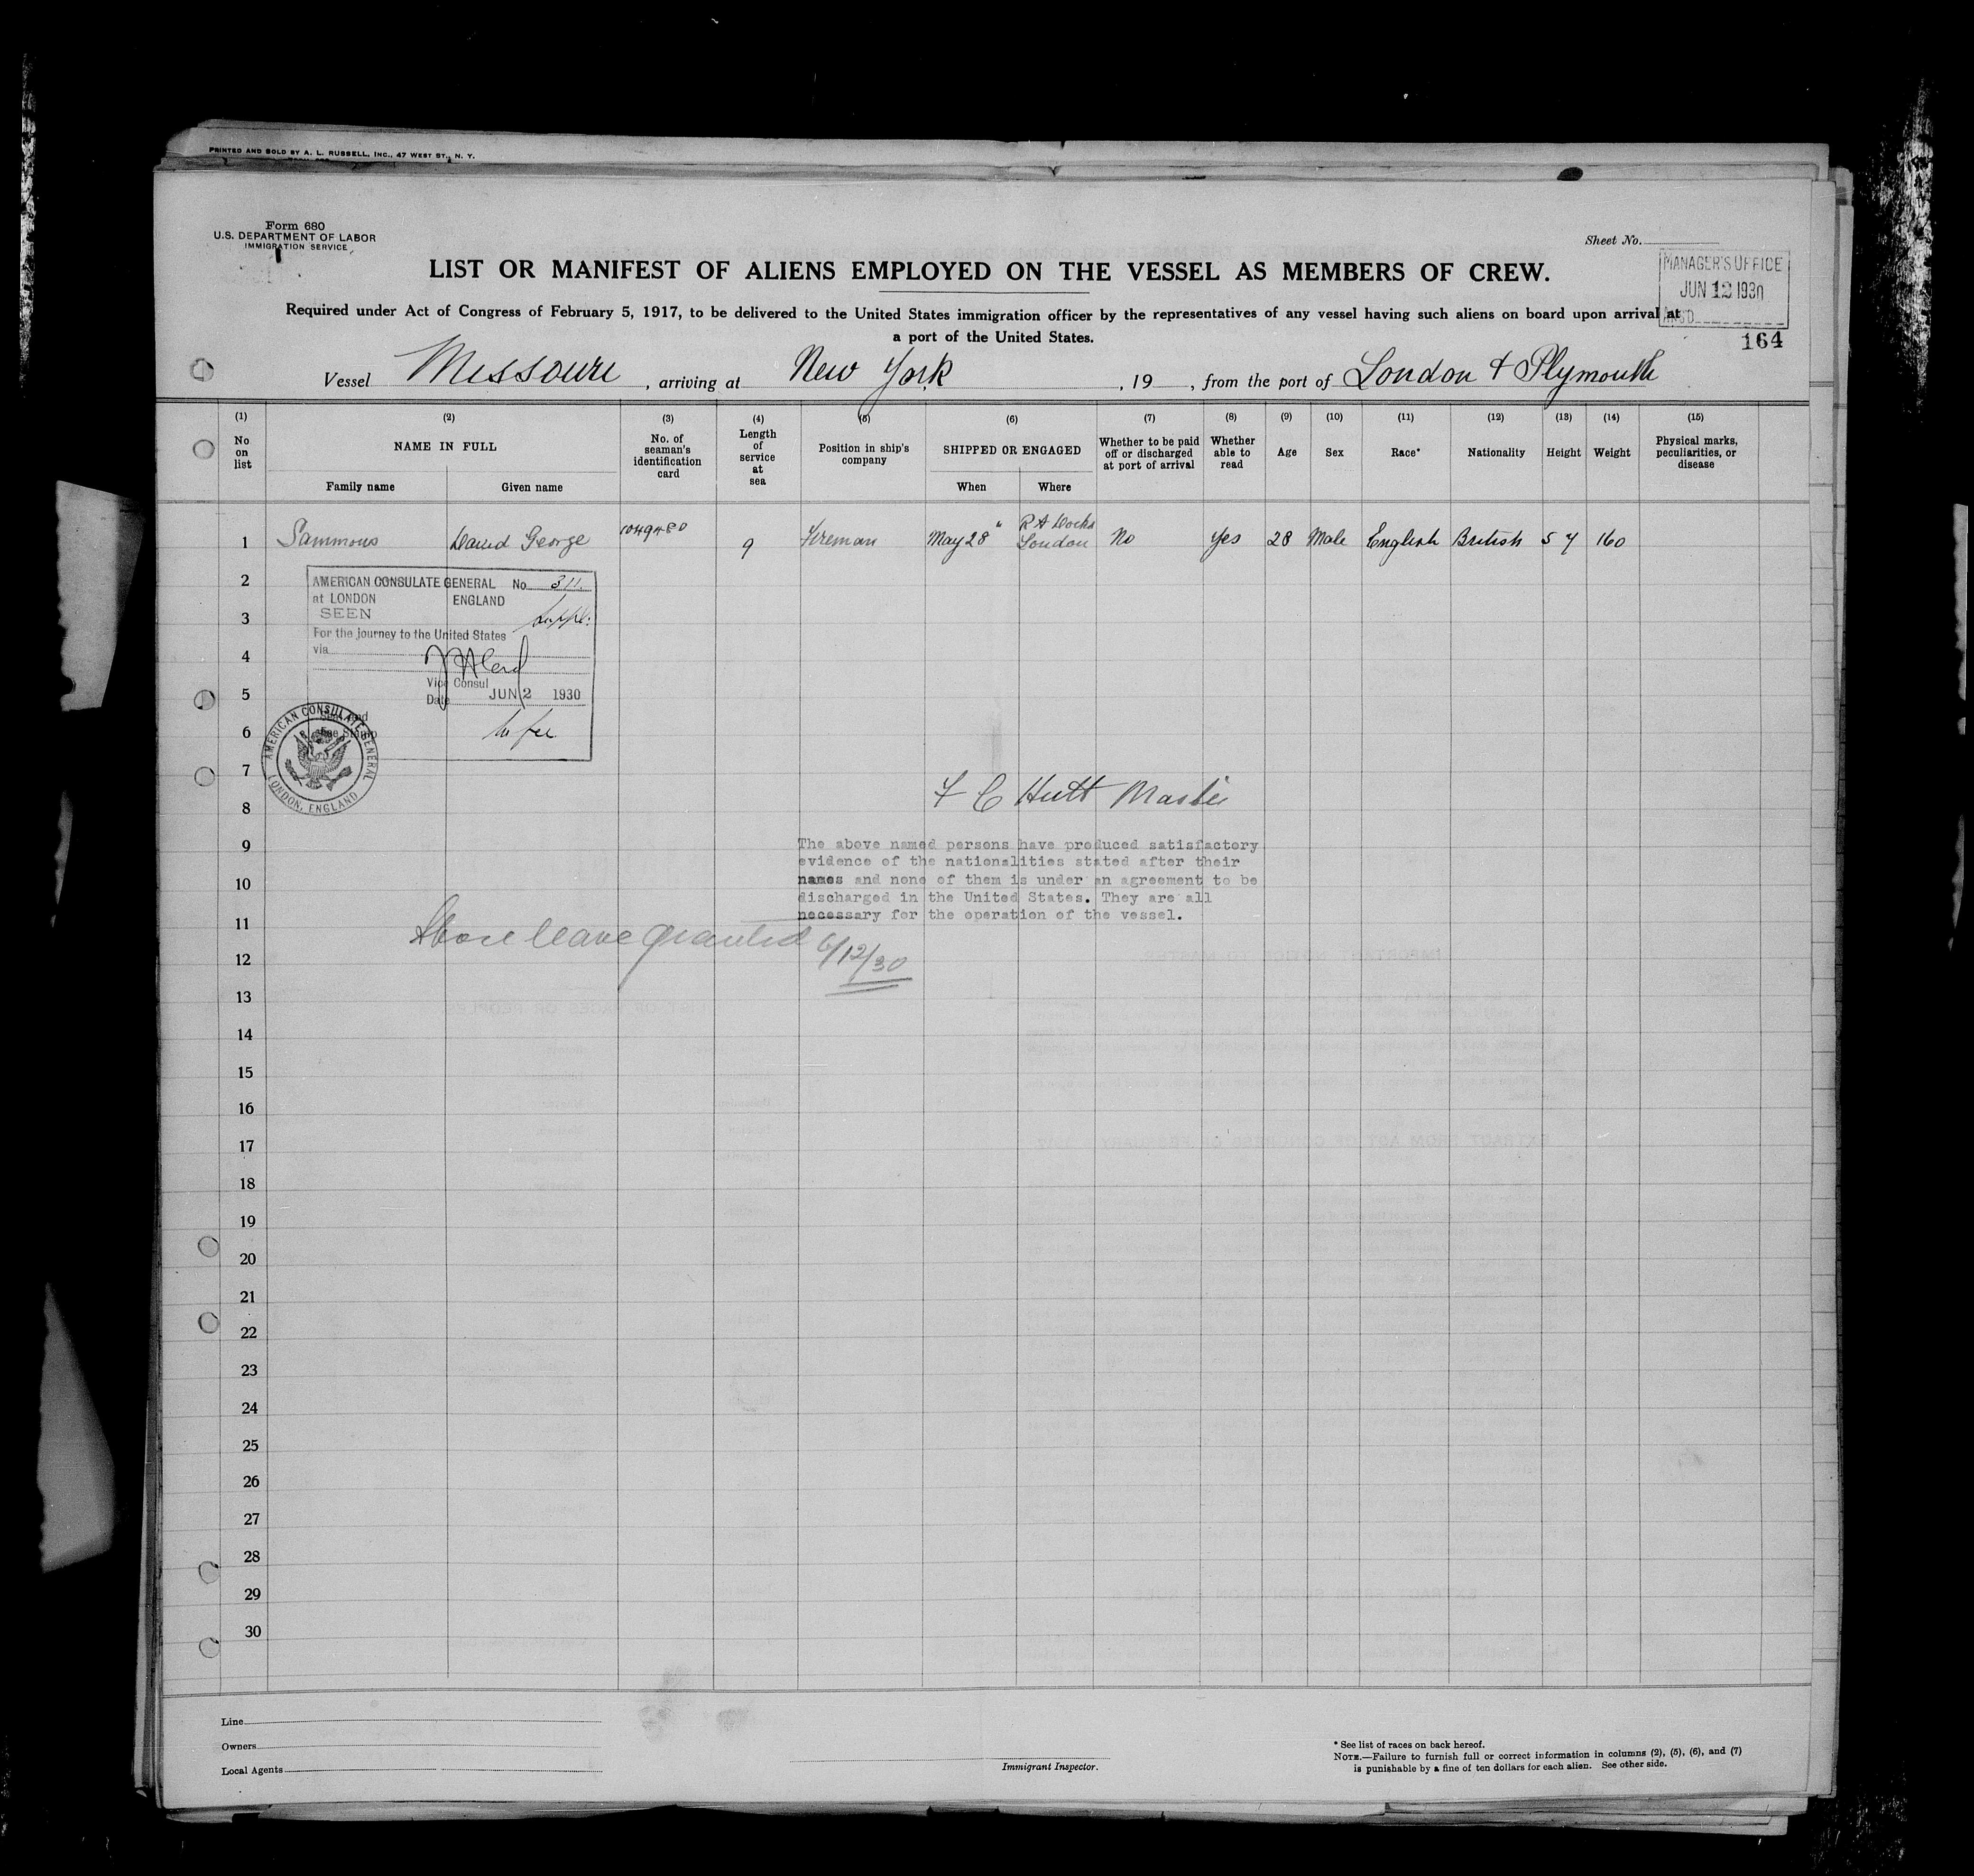 PRINTED AND SOLD BY A. L. RUSSELL, INC., 47 WEST ST., N. Y.
Form 680
U.S. DEPARTMENT OF LABOR
IMMIGRATION SERVICE
Sheet No.
LIST OR MANIFEST OF ALIENS EMPLOYED ON THE VESSEL AS MEMBERS OF CREW.
MANAGER'S OFFICE
JUN 12 1930
Required under Act of Congress of February 5, 1917, to be delivered to the United States immigration officer by the representatives of any vessel having such aliens on board upon arrival at
a port of the United States.
164
Vessel Missouri, arriving at New York, 19, from the port of London & Plymouth
(1) (2) (3) (4) (5) (6) (7) (8) (9) (10) (11) (12) (13) (14) (15)
No on list
NAME IN FULL
Family name
Given name
No. of seaman's identification card
Length of service at sea
Position in ship's company
SHIPPED OR ENGAGED
When
Where
Whether to be paid off or discharged at port of arrival
Whether able to read
Age
Sex
Race*
Nationality
Height
Weight
Physical marks, peculiarities, or disease
1 Sammons David George 1049480 9 Fireman May 28 R A Docks London No Yes 28 Male English British 5 7 160
2
3
4
5
6
7
8
9
10
11
12
13
14
15
16
17
18
19
20
21
22
23
24
25
26
27
28
29
30
AMERICAN CONSULATE GENERAL No. 311.
at LONDON ENGLAND
SEEN
Suppl:
For the journey to the United States
via
Vice Consul
Date JUN 2 1930
No fee
AMERICAN CONSULATE GENERAL
LONDON, ENGLAND
F C Hutt Master
The above named persons have produced satisfactory
evidence of the nationalities stated after their
names and none of them is under an agreement to be
discharged in the United States. They are all
necessary for the operation of the vessel.
Shore leave granted 6/12/30
Line
Owners
Local Agents
Immigrant Inspector.
* See list of races on back hereof.
NOTE.—Failure to furnish full or correct information in columns (2), (5), (6), and (7)
is punishable by a fine of ten dollars for each alien. See other side.